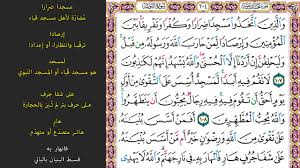 مسجدا ضرارا
مُضارّة لأهل مسجد قباء
إرصادا
ترقّبا وانتظارا، أو إعدادا
لمسجد
هو مسجد قباء أو المسجد النبوي
على شفا جرف
على حرف بئر لم تُبْنَ بالحجارة
هار
هائر متصدّع أو متهدّم
فانهار به
فسقط البنيان بالباني
٢٠٤
وَٱلَّذِينَ ٱتَّخَذُوا۟ مَسْجِدًا ضِرَارًا وَكُفْرًا وَتَفْرِيقًۢا بَيْنَ
ٱلْمُؤْمِنِينَ وَإِرْصَادًا لِّمَنْ حَارَبَ ٱللَّهَ وَرَسُولَهُۥ مِن قَبْلُ
وَلَيَحْلِفُنَّ إِنْ أَرَدْنَآ إِلَّا ٱلْحُسْنَىٰ وَٱللَّهُ يَشْهَدُ إِنَّهُمْ لَكَٰذِبُونَ
١٠٧ لَا تَقُمْ فِيهِ أَبَدًا لَّمَسْجِدٌ أُسِّسَ عَلَى ٱلتَّقْوَىٰ مِنْ أَوَّلِ
يَوْمٍ أَحَقُّ أَن تَقُومَ فِيهِ فِيهِ رِجَالٌ يُحِبُّونَ أَن يَتَطَهَّرُوا۟
وَٱللَّهُ يُحِبُّ ٱلْمُطَّهِّرِينَ ١٠٨ أَفَمَنْ أَسَّسَ بُنْيَٰنَهُۥ عَلَىٰ
تَقْوَىٰ مِنَ ٱللَّهِ وَرِضْوَٰنٍ خَيْرٌ أَم مَّنْ أَسَّسَ بُنْيَٰنَهُۥ
عَلَىٰ شَفَا جُرُفٍ هَارٍ فَٱنْهَارَ بِهِۦ فِى نَارِ جَهَنَّمَ